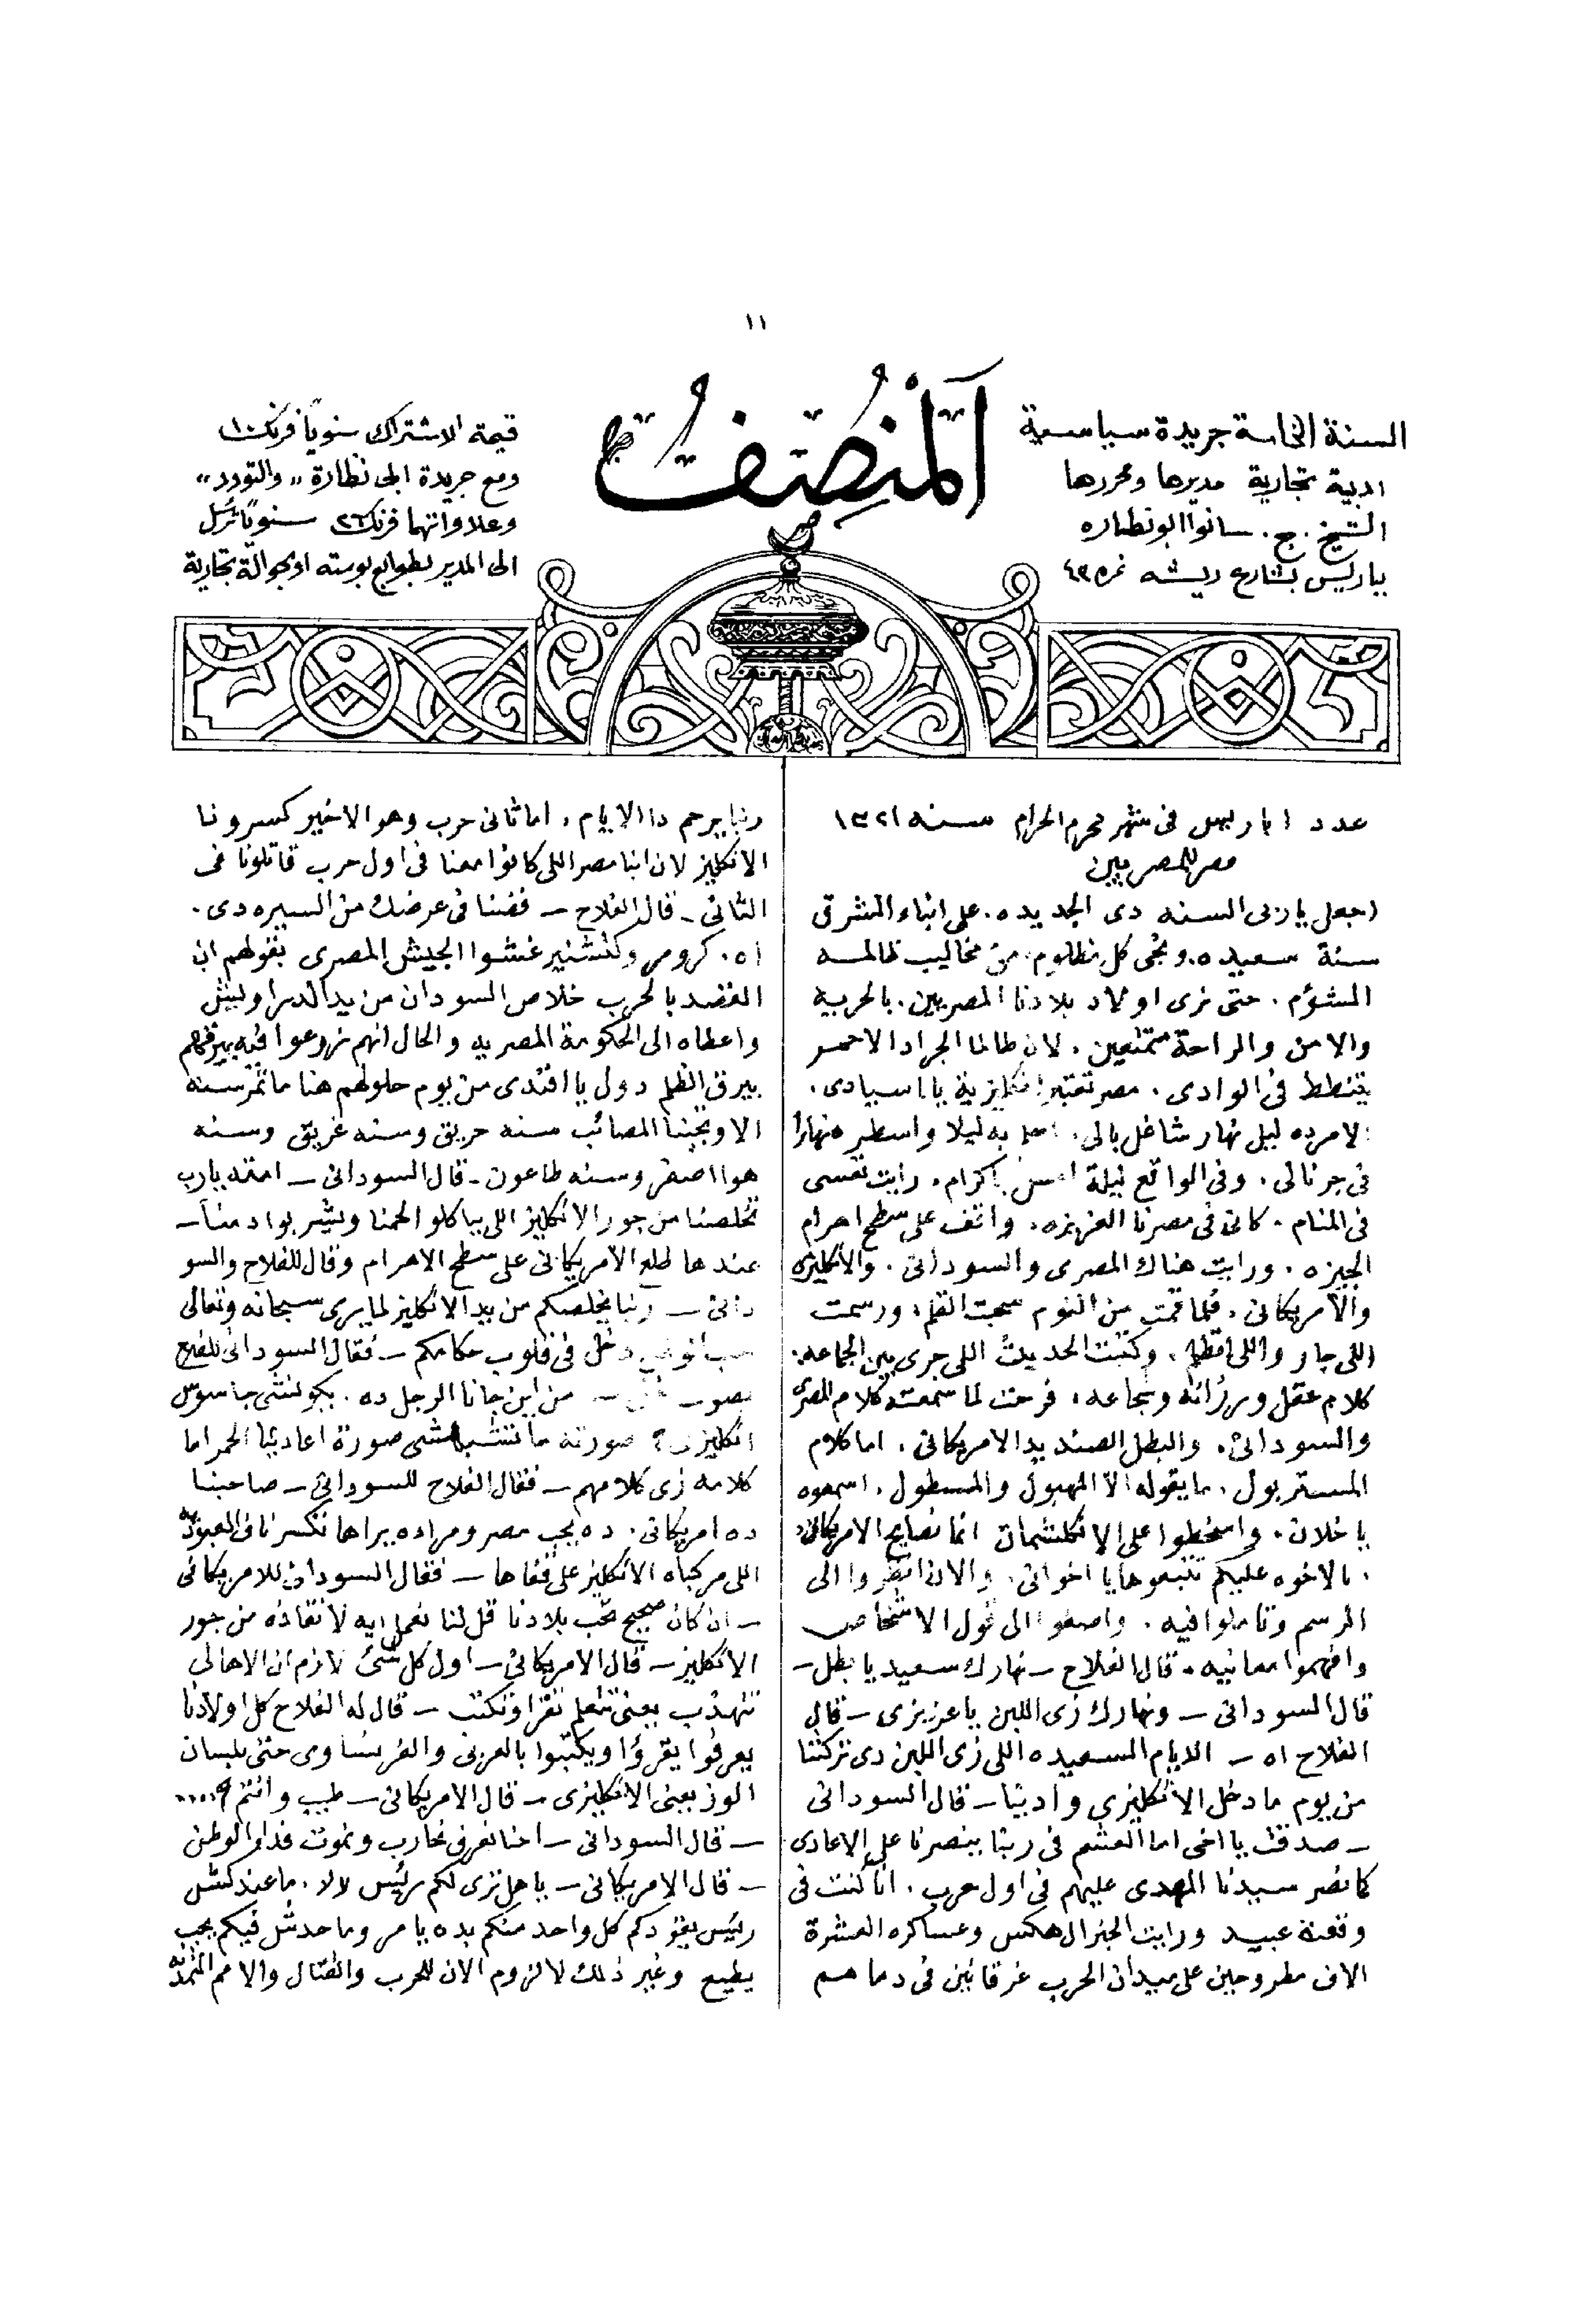 ١١
اَلْمُنْصِفُ
السنة الخامسة جريدة سياسية
ادبية تجارية مديرها ومحررها
الشيخ ج. سانوا ابو نظاره
بباريس بشارع ريشه نمره ٤٣
قيمة الاشتراك سنوياً فرنك ١٠
ومع جريدة ابى نظارة ״ والتودد״
وعلاواتهما فرنك ٢٦ سنوياً ترسل
الى المدير بطوابع بوسته او بحوالة تجارية
عدد ١ باريس فى شهر محرم الحرام سنه ١٣٢١
مصر للمصريين
اجعل يا ربى السنه دى الجديده. على ابناء الشرق
سنة سعيده. ونجى كل مظلوم. من مخاليب ظالمه
المشؤم. حتى نرى اولاد بلادنا المصريين. بالحرية
والامن والراحة متمتعين. لان طالما الجراد الاحمر
يتنطط فى الوادى. مصر تعتبر انكليزية يا اسيادى.
الامر ده ليل نهار شاغل بالى. احلم به ليلا واسطره نهارا
فى جرنالى. وفى الواقع ليلة امس يا كرام. رايت نفسى
فى المنام. كانى فى مصرنا العزيزه. واقف على سطح اهرام
الجيزه. ورايت هناك المصرى والسودانى. والانكليزى
والامريكانى. فلما قمت من النوم سحبت القلم. ورسمت
اللى جار واللى اتظلم. وكتبت الحديث اللى جرى بين الجماعه.
كلام عقل ورزانه وشجاعه. فرحت لما سمعت كلام المصرى
والسودانى. والبطل الصنديد الامريكانى. اما كلام
المستر بول. ما يقوله الا المهبول والمسطول. اسمعوه
يا خلان. واسخطوا على الانكلشمان انما نصايح الامريكانى
. بالاخوه عليكم تتبعوها يا اخوانى. والان انظروا الى
الرسم وتاملوا فيه. واصغوا الى قول الاشخاص
وافهموا معانيه. قال الفلاح – نهارك سعيد يا بطل –
قال السودانى – ونهارك زى اللبن يا عزيزى – قال
الفلاح اه – الايام السعيده اللى زى اللبن دى تركتنا
من يوم ما دخل الانكليزى وادينا – قال السودانى
– صدقت يا اخى اما العشم فى ربنا ينصرنا على الاعادى
كما نصر سيدنا المهدى عليهم فى اول حرب. انا كنت فى
وقعة عبيد ورايت الجنرال هكس وعساكره العشرة
الاف مطروحين على ميدان الحرب غرقانين فى دماهم
ربنا يرحم دا الايام. اما ثانى حرب وهو الاخير كسرونا
الانكليز لان ابنا مصر اللى كانوا معنا فى اول حرب قاتلونا فى
الثانى – قال الفلاح – فضنا فى عرضك من السيره دى.
اه. كرومر وكتشنير غشوا الجيش المصرى بقولهم ان
القصد بالحرب خلاص السودان من يد الدراويش
واعطاه الى الحكومة المصريه والحال انهم زرعوا فيه بيرقهم
بيرق الظلم دول يا افندى من يوم حلولهم هنا ما تمر سنه
الا وتجينا المصائب سنه حريق وسنه غريق وسنه
هوا اصفر وسنه طاعون – قال السودانى – امته يا رب
تخلصنا من جور الانكليز اللى بياكلوا لحمنا وبيشربوا دمنا –
عندها طلع الامريكانى على سطح الاهرام وقال للفلاح والسو
دانى – ربنا يخلصكم من يد الانكليز لما يرى سبحانه وتعالى
دخل فى قلوب حكامكم – فقال السودانى للفلاح
بصوت – من اين جانا الرجل ده. يكونشى جاسوس
انكليزى؟ صورته ما تتشبهشى صورة اعادينا الحمر اما
كلامه زى كلامهم – فقال الفلاح للسودانى – صاحبنا
ده امريكانى. ده يحب مصر ومراده يراها تكسر ناف العبوديه
اللى مركباه الانكليز على قفاها – فقال السودانى للامريكانى
– ان كان صحيح تحب بلادنا قل لنا نعمل ايه لانقاذه من جور
الانكليز – قال الامريكانى – اول كل شئ لازم ان الاهالى
تتهذب يعنى تتعلم تقرا وتكتب – قال له الفلاح كل اولادنا
يعرفوا يقرؤا ويكتبوا بالعربى والفرنساوى حتى بلسان
الوز يعنى الانكليزى – قال الامريكانى – طيب وانتم؟.....
– قال السودانى – احنا نعرف نحارب ونموت فدا الوطن
– قال الامريكانى – يا هل ترى لكم رئيس لالا. ما عندكش
رئيس يقودكم كل واحد منكم بده يامر وما حدش فيكم يحب
يطيع وغير ذلك لا لزوم الان للحرب والقتال والامم المتمدنه